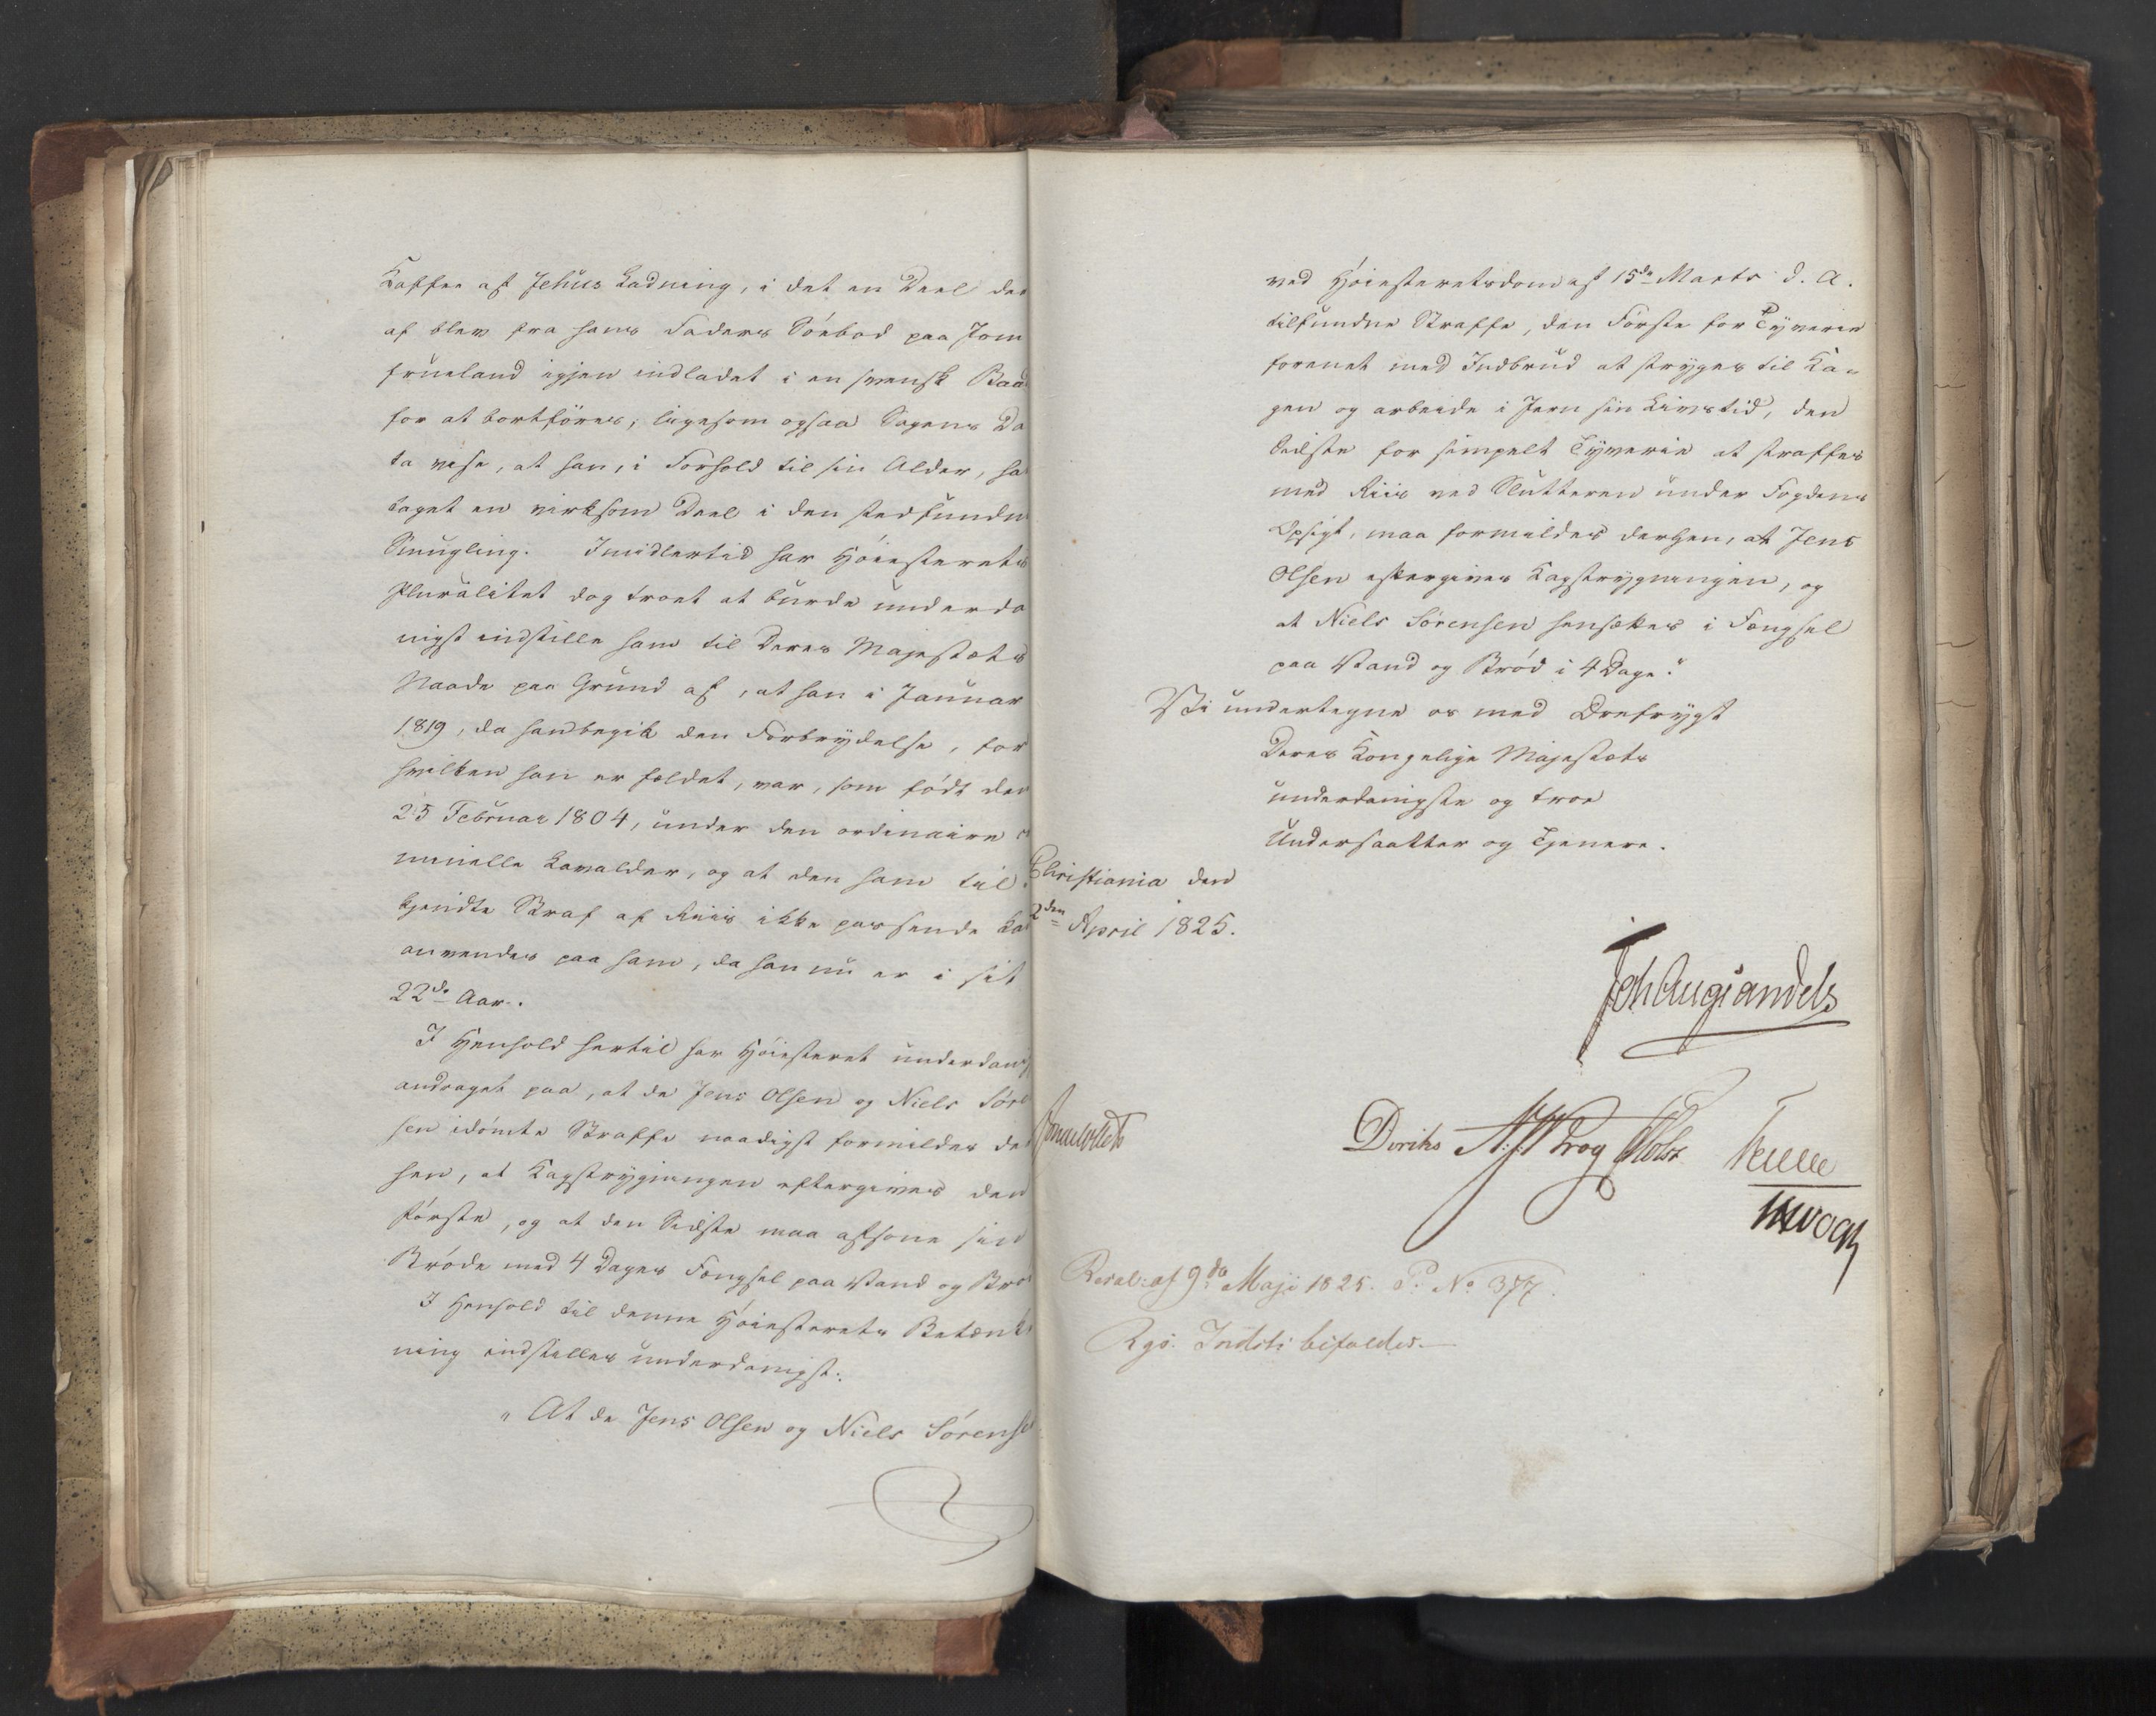 Kaffee af Jehus Ladning, i det en Deel der
af blev fra hans Faders Söebod paa Jom
frueland igjen indladet i en svensk Baad
for at bortföres, ligesom ogsaa Sagens Da
ta vise, at han, i Forhold til sin Alder, ha
taget en virksom Deel i den stedfundne
Smugling. Imidlertid har Höiesterets
Pluralitet dog troet at burde underda
nigst indstille ham til Deres Majestæts
Naade paa Grund af, at han i Januar
1819, da han begik den Forbrydelse, for
hvilken han er fældet, var, som födt den
25 Februar 1804, under den ordinaire
minelle Lavalder, og at den ham til
kjendte Straf af Riis ikke passende ka
anvendes paa ham, da han nu er i sit
22de Aar.
I Henhold hertil har Höiesteret underdan
andraget paa, at de Jens Olsen og Niels Sören
sen idömte Straffe naadigst formildes der
hen, at Kagstrygningen eftergives den
förste, og at den Sidste maa afsone sin
Bröde med 4 Dages Fængsel paa Vand og Brö
I Henhold til denne Höiesterets Betænk
ning indstilles underdanigst:
"At de Jens Olsen og Niels Sörensen
ved Höiesteretsdom af 15de Marts d. A.
tilfundne Straffe, den Förste for Tyverie
forenet med Indbrud at stryges til Ka-
gen og arbeide i Jern sin Livstid, den
Sidste for simpelt Tyverie at straffes
med Riis ved Slutteren under Fogdens
Opsigt, maa formildes derhen, at Jens
Olsen eftergives Kagstrygningen, og
at Niels Sörensen hensættes i Fængsel
paa Vand og Bröd i 4 Dage."
Vi undertegne os med Ærefrygt
Deres Kongelige Majestæts
underdanigste og troe
Undersaatter og Tjenere.
Christiania den
2den April 1825.
Joh Aug Sandels
Jonas Collett
Diriks A. Krog Holst Treschow
Vogt
Resol: af 9de Maji 1825. P. No 377.
Rgs. Indst: bifaldes.